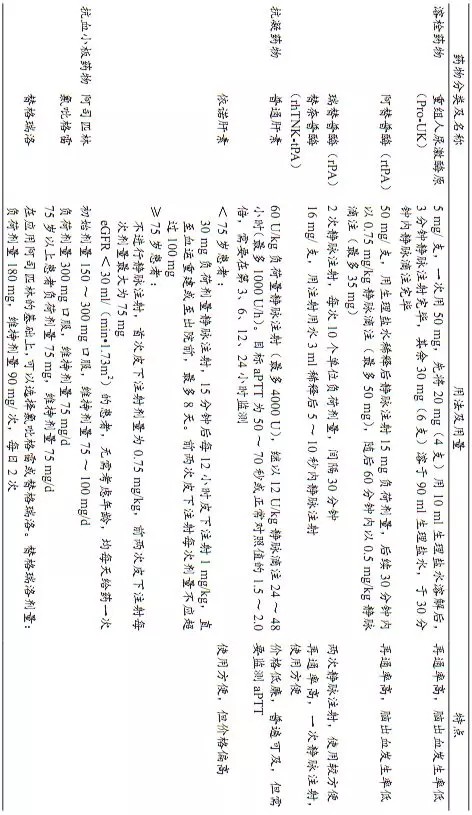 药物分类及名称 用法及用量 特点
溶栓药物
重组人尿激酶原 5 mg/支，一次用 50 mg，先将 20 mg（4 支）用 10 ml 生理盐水溶解后， 再通率高，脑出血发生率低
(Pro-UK) 3 分钟静脉注射完毕，其余 30 mg（6 支）溶于 90 ml 生理盐水，于 30 分
钟内静脉滴注完毕
阿替普酶（rtPA） 50 mg/支，用生理盐水稀释后静脉注射 15 mg 负荷剂量，后续 30 分钟内 再通率高，脑出血发生率低
以 0.75 mg/kg 静脉滴注（最多 50 mg），随后 60 分钟内以 0.5 mg/kg 静脉
滴注（最多 35 mg）
瑞替普酶（rPA） 2 次静脉注射，每次 10 个单位负荷剂量，间隔 30 分钟 两次静脉注射，使用较方便
替奈普酶 16 mg/支，用注射用水 3 ml 稀释后 5～10 秒内静脉注射 再通率高，一次静脉注射，
(rhTNK-tPA) 使用方便
抗凝药物
普通肝素 60 U/kg 负荷量静脉注射（最多 4000 U），继以 12 U/kg 静脉滴注 24～48 价格低廉，普遍可及，但需
小时（最多 1000 U/h）。目标 aPTT 为 50～70 秒或正常对照值的 1.5～2.0 要监测 aPTT
倍，需要在第 3、6、12、24 小时监测
依诺肝素 ＜75 岁患者： 使用方便，但价格偏高
30 mg 负荷剂量静脉注射，15 分钟后每 12 小时皮下注射 1 mg/kg，直
至血运重建或至出院前，最多 8 天。前两次皮下注射每次剂量不应超
过 100 mg
≥75 岁患者：
不进行静脉注射，首次皮下注射剂量为 0.75 mg/kg，前两次皮下注射每
次剂量最大为 75 mg
eGFR＜30 ml/(min•1.73m²) 的患者，无需考虑年龄，均每天给药一次
抗血小板药物
阿司匹林 初始剂量 150～300 mg 口服，维持剂量 75～100 mg/d
氯吡格雷 负荷剂量 300 mg 口服，维持剂量 75 mg/d
75 岁以上患者负荷剂量 75 mg，维持剂量 75 mg/d
替格瑞洛 在应用阿司匹林的基础上，可以选择氯吡格雷或替格瑞洛。替格瑞洛剂量：
负荷剂量 180 mg，维持剂量 90 mg/次，每日 2 次